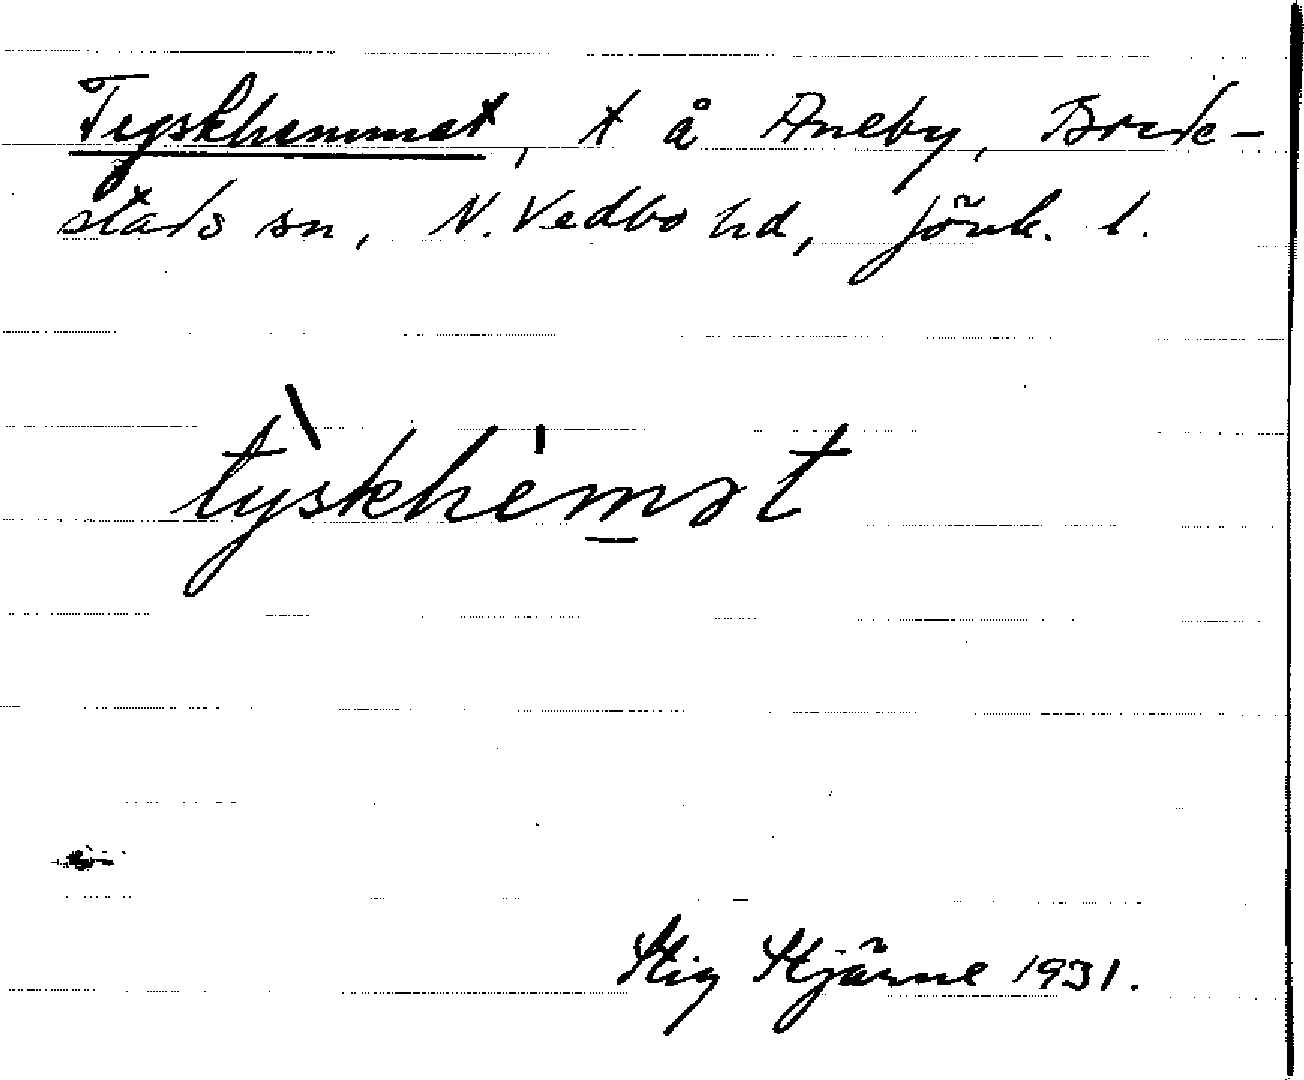 Tyskhemmet, t å Aneby, Brede-
stads sn, N. Vedbo hd, Jönk. l.
tỳskhémət
Stig Stjärne 1931.